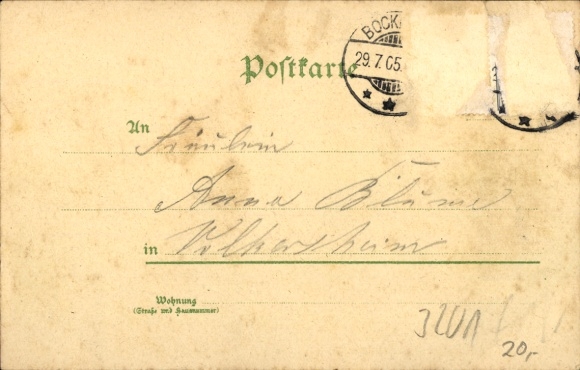 BOCK
29.7.05.
Postkarte
An Fräulein
Anna Blume
in Volkersheim
Wohnung
(Straße und Hausnummer)
3201
20,-